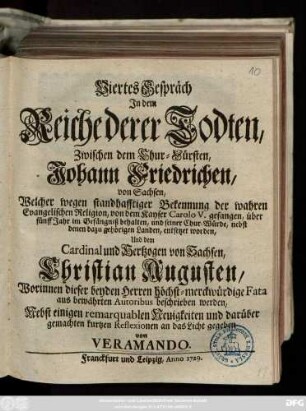 10
Viertes Gespräch
In dem
Reiche derer Todten,
Zwischen dem Chur-Fürsten,
Johann Friedrichen,
von Sachsen,
Welcher wegen standhafftiger Bekennung der wahren
Evangelischen Religion, von dem Kayser Carolo V. gefangen, über
fünff Jahr im Gefängniß behalten, und seiner Chur-Würde, nebst
denen dazu gehörigen Landen, entsetzet worden,
Und dem
Cardinal und Hertzogen von Sachsen,
Christian Augusten,
Worinnen dieser beyden Herren höchst-merckwürdige Fata
aus bewährten Autoribus beschrieben werden,
Nebst einigen remarquablen Neuigkeiten und darüber
gemachten kurtzen Reflexionen an das Licht gegeben
von
VERAMANDO.
Franckfurt und Leipzig, Anno 1729.